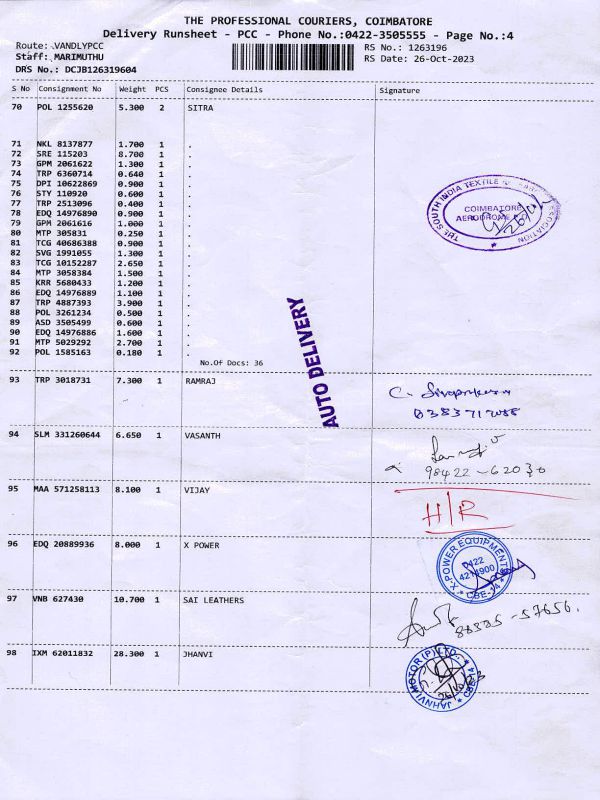 THE PROFESSIONAL COURIERS, COIMBATORE
Delivery Runsheet - PCC - Phone No.:0422-3505555 - Page No.:4
Route: VANDLYPCC RS No.: 1263196
Staff: MARIMUTHU RS Date: 26-Oct-2023
DRS No.: DCJB126319604
S No Consignment No Weight PCS Consignee Details Signature
70 POL 1255620 5.300 2 SITRA
71 NKL 8137877 1.700 1 .
72 SRE 115203 8.700 1 .
73 GPM 2061622 1.300 1 .
74 TRP 6360714 0.640 1 .
75 DPI 10622869 0.900 1 .
76 STY 110920 0.600 1 .
77 TRP 2513096 0.400 1 .
78 EDQ 14976890 0.900 1 .
79 GPM 2061616 1.000 1 .
80 MTP 305831 0.250 1 .
81 TCG 40686388 0.900 1 .
82 SVG 1991055 1.300 1 .
83 TCG 10152287 2.650 1 .
84 MTP 3058384 1.500 1 .
85 KRR 5680433 1.200 1 .
86 EDQ 14976889 1.100 1 .
87 TRP 4887393 3.900 1 .
88 POL 3261234 0.500 1 .
89 ASD 3505499 0.600 1 .
90 EDQ 14976886 1.600 1 .
91 MTP 5029292 2.700 1 .
92 POL 1585163 0.180 1 .
No.Of Docs: 36
THE SOUTH INDIA TEXTILE ASSOCIATION
COIMBATORE
AERODROME
AUTO DELIVERY
93 TRP 3018731 7.300 1 RAMRAJ
94 SLM 331260644 6.650 1 VASANTH
98422-62030
95 MAA 571258113 8.100 1 VIJAY
H/R
96 EDQ 20889936 8.000 1 X POWER
X-POWER EQUIPMENTS
0422
4214900
CBE-14
97 VNB 627430 10.700 1 SAI LEATHERS
98 IXM 62011832 28.300 1 JHANVI
JAHNVI MOTOR (P) LTD., CBE-14